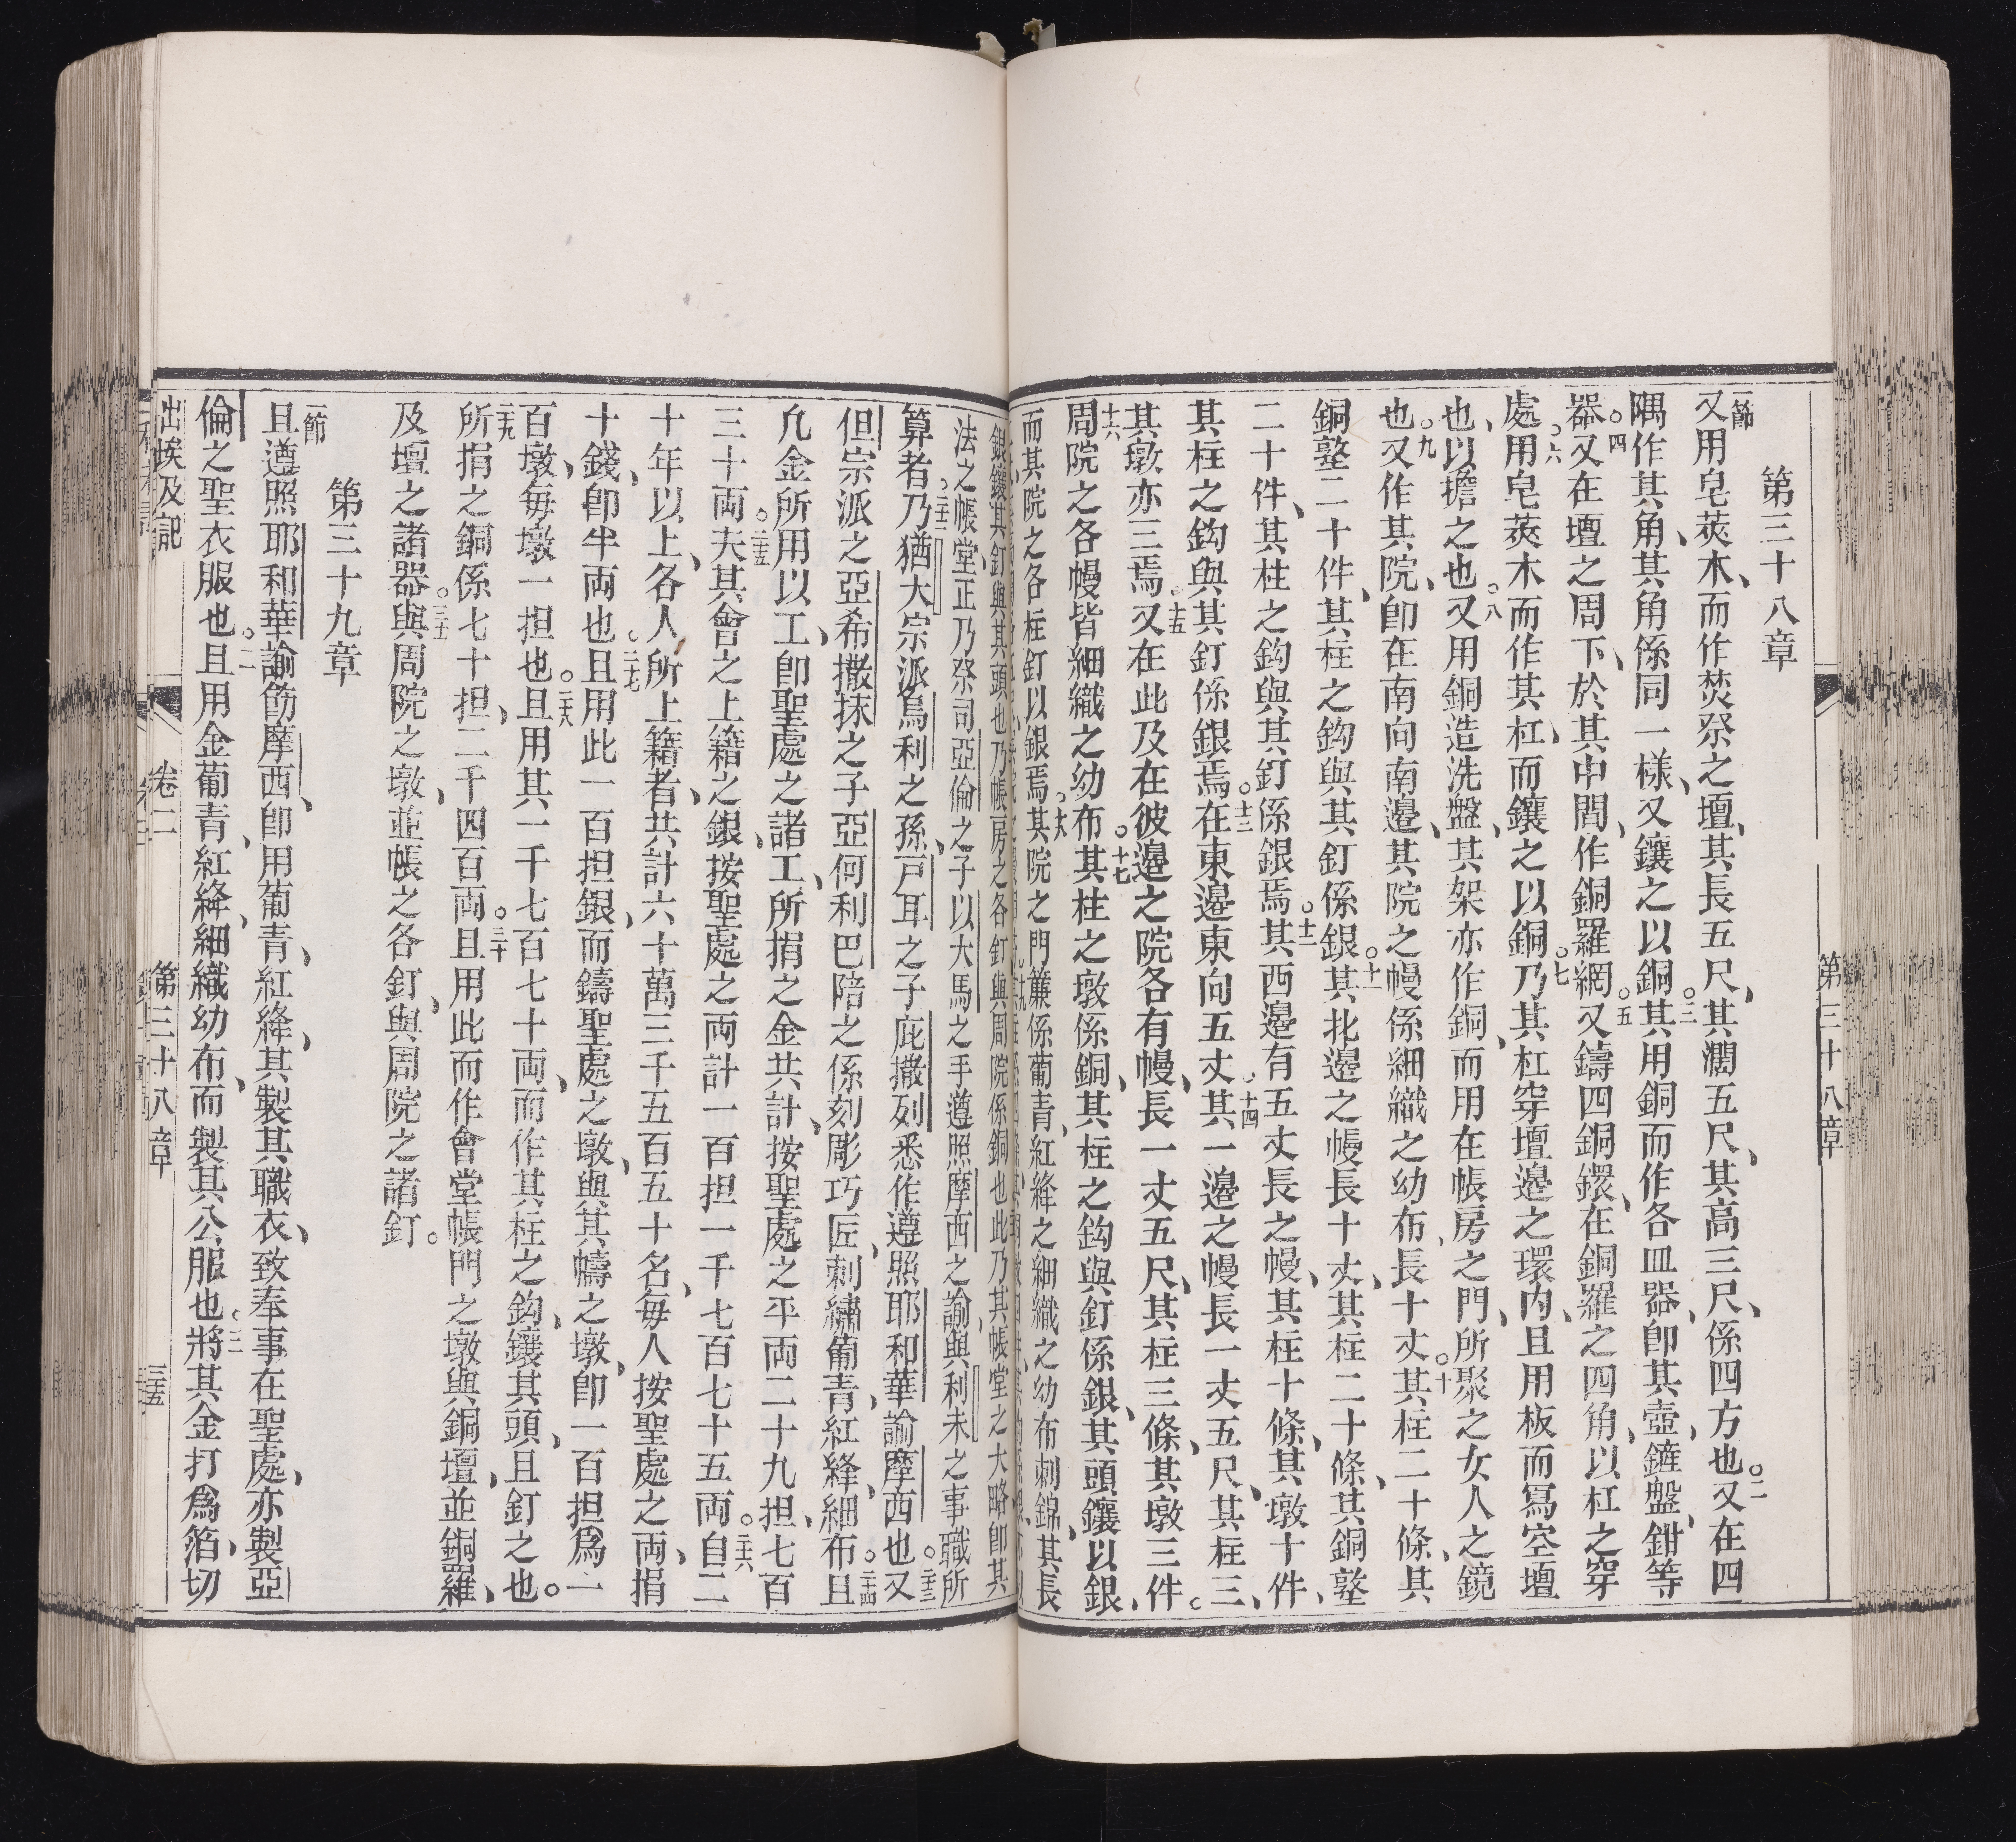 第三十八章
第三十八章
一節又用皂莢木、而作焚祭之壇、其長五尺、其濶五尺、其高三尺、係四方也。二又在四
隅作其角、其角係同一樣、又鑲之以銅。三其用銅而作各皿器、卽其壺、鏟、盤、鉗等
器。四又在壇之周下、於其中間、作銅羅網。五又鑄四銅鐶、在銅羅之四角、以杠之穿
處。六用皂莢木而作其杠、而鑲之以銅。七乃其杠穿壇邊之環內、且用板而寫空壇
也、以擔之也。八又用銅造洗盤、其架亦作銅、而用在帳房之門、所聚之女人之鏡
也。九又作其院、卽在南向南邊、其院之幔係細織之幼布、長十丈。十其柱二十條、其
銅墪二十件、其柱之鈎與其釘係銀。十一其北邊之幔長十丈、其柱二十條、其銅墪
二十件、其柱之鈎與其釘係銀焉。十二其西邊有五丈長之幔、其柱十條、其墩十件、
其柱之鈎與其釘係銀焉。十三在東邊東向五丈。十四其一邊之幔長一丈五尺、其柱三、
其墩亦三焉。十五又在此及在彼邊之院各有幔、長一丈五尺、其柱三條、其墩三件。
十六周院之各幔皆細織之幼布。十七其柱之墩係銅、其柱之鈎與釘係銀、其頭鑲以銀、
而其院之各柱釘以銀焉。十八其院之門簾係葡青、紅絳之細織之幼布刺錦、其長
銀鑲其釘與其頭也乃帳房之各釘與周院係銅也此乃其帳堂之大略卽其
法之帳堂、正乃祭司亞倫之子以大馬之手遵照摩西之諭、與利未之事職所
算者。二十二乃猶大宗派烏利之孫、戸耳之子庇撒列悉作遵照耶和華諭摩西也。二十三又
但宗派之亞希撒抹之子亞何利巴陪之係刻彫巧匠、刺繡葡青、紅絳、細布。二十四且
凡金所用以工、卽聖處之諸工、所捐之金共計、按聖處之平両二十九担、七百
三十両。二十五夫其會之上籍之銀、按聖處之両計一百担一千七百七十五両。二十六自二
十年以上、各人所上籍者、共計六十萬三千五百五十名、每人按聖處之両、捐
十錢、卽半両也。二十七且用此一百担銀、而鑄聖處之墩、與其幬之墩、卽一百担爲一
百墩、每墩一担也。二十八且用其一千七百七十両、而作其柱之鈎、鑲其頭、且釘之也。
二十九所捐之銅係七十担、二千四百両。三十且用此而作會堂帳門之墩與銅壇、並銅羅、
及壇之諸器。三十一與周院之墩、並帳之各釘、與周院之諸釘。
第三十九章
一節且遵照耶和華諭飭摩西、卽用葡青、紅絳、其製其職衣、致奉事在聖處、亦製亞
倫之聖衣服也。二且用金葡青、紅絳、細織幼布、而製其公服也。三將其金打爲箔、切
出埃及記 卷二 第三十八章 三十五